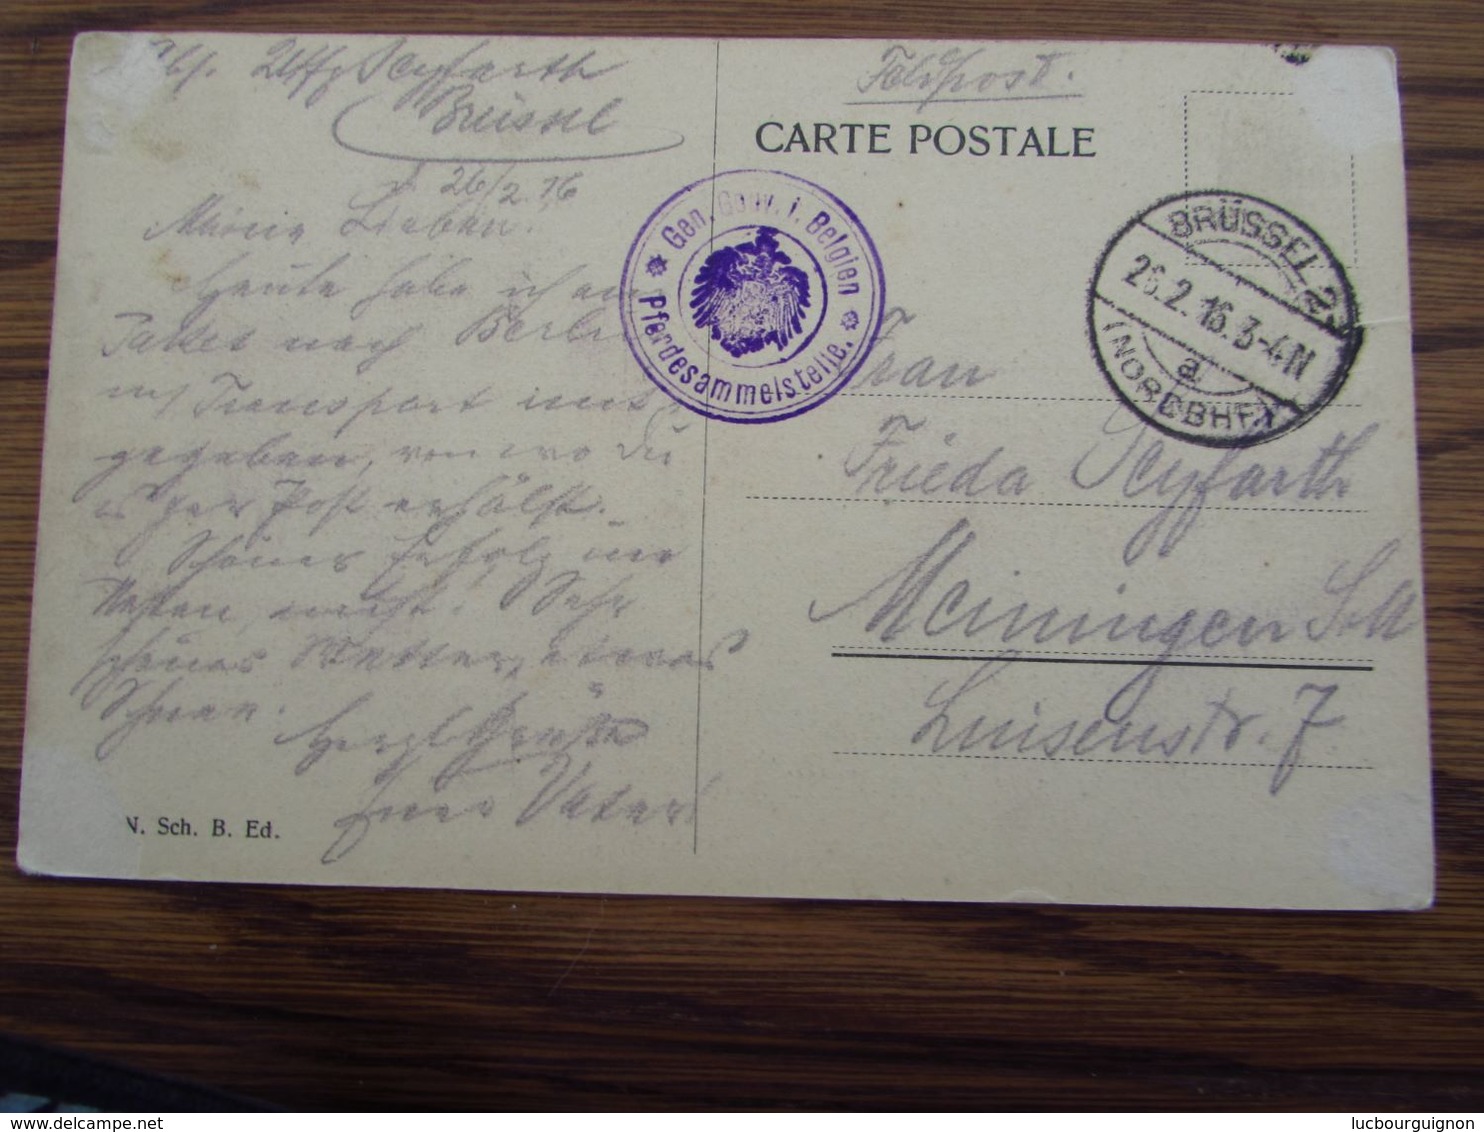 Abs. Uffz Seyfarth
Brüssel
26/2.16
Meine Lieben.
Heute habe ich ein
Paket nach Berlin
Transport mit-
gegeben, von wo Du
es per Post erhältst.
Schönes Erfolg im
Westen, nicht. Sehr
schönes Wetter, etwas
Schnee.
Herzl Grüße
Euer Vater
N. Sch. B. Ed.
Feldpost.
CARTE POSTALE
Gen. Gouv. i. Belgien
Pferdesammelstelle.
BRÜSSEL 2
26.2.16.3-4N
a
(NORDBHF)
Frau
Frieda Seyfarth
Meiningen S.M
Luisenstr. 7
delcampe.net
lucbourguignon